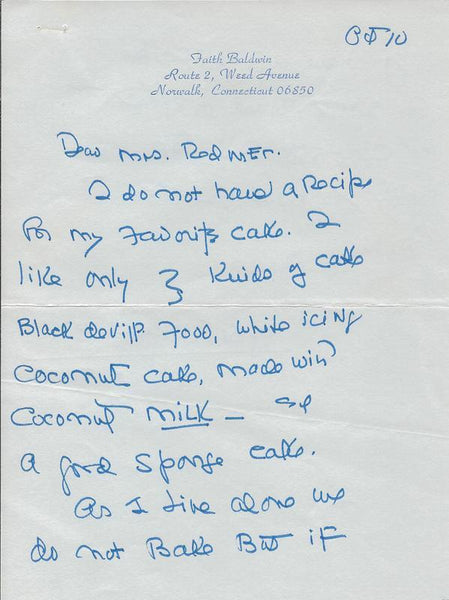 Oct 10
Faith Baldwin
Route 2, Weed Avenue
Norwalk, Connecticut 06850
Dear Mrs. Redmer.
I do not have a Recipe
for my favorite cake. I
like only 3 kinds of cake
Black devil's food, white icing
Coconut cake, made with
Coconut MILK —
a good sponge cake.
As I live alone we
do not Bake But if